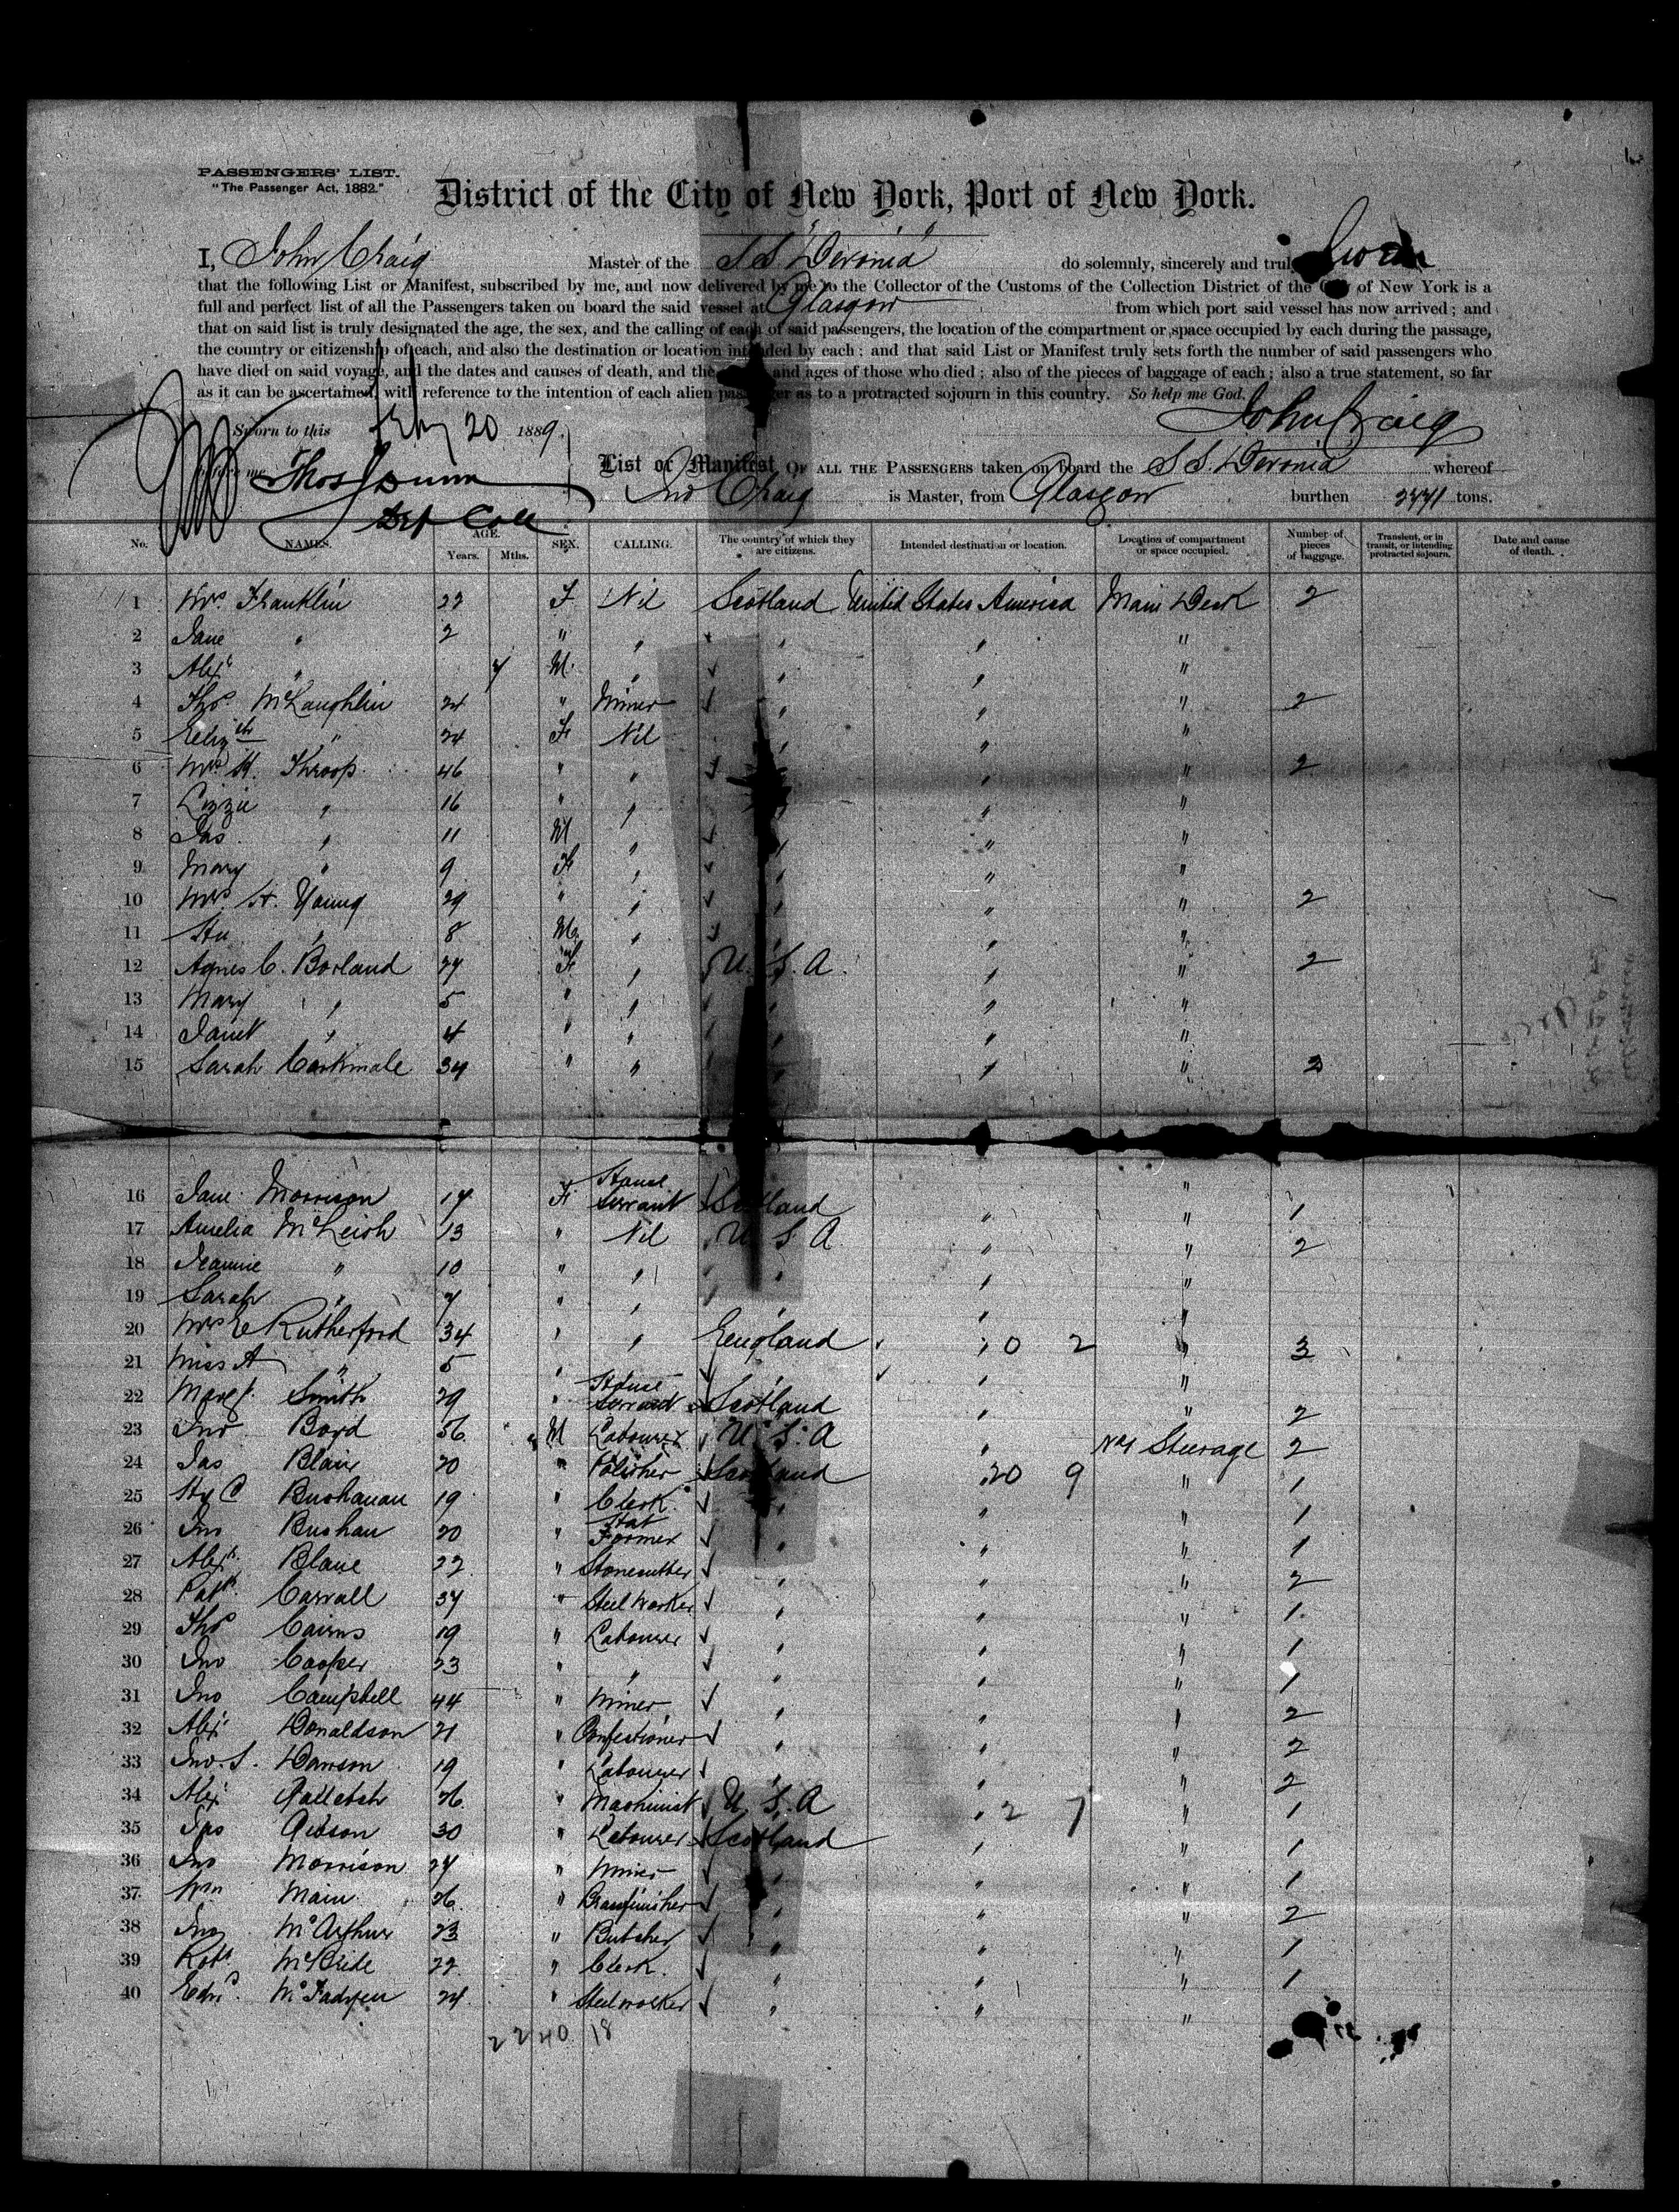 PASSENGERS' LIST.
"The Passenger Act, 1882."
District of the City of New York, Port of New York.
I, John Craig Master of the S S "Devonia" do solemnly, sincerely and truly Swear
that the following List or Manifest, subscribed by me, and now delivered by me to the Collector of the Customs of the Collection District of the City of New York is a
full and perfect list of all the Passengers taken on board the said vessel at Glasgow from which port said vessel has now arrived; and
that on said list is truly designated the age, the sex, and the calling of each of said passengers, the location of the compartment or space occupied by each during the passage,
the country or citizenship of each, and also the destination or location intended by each: and that said List or Manifest truly sets forth the number of said passengers who
have died on said voyage, and the dates and causes of death, and the and ages of those who died; also of the pieces of baggage of each; also a true statement, so far
as it can be ascertained, with reference to the intention of each alien passenger as to a protracted sojourn in this country. So help me God.
John Craig
Sworn to this Feby 20 1889
before me Thos Dunn
Dep Coll
List or Manifest OF ALL THE PASSENGERS taken on board the S S. Devonia whereof
Jno Craig is Master, from Glasgow burthen tons.
No. NAMES. AGE. Years. Mths. SEX. CALLING. The country of which they are citizens. Intended destination or location. Location of compartment or space occupied. Number of pieces of baggage. Transient, or in transit, or intending protracted sojourn. Date and cause of death.
1 Mrs. Franklin 22 F Nil Scotland United States America Main Deck 2
2 Jane " 2 " " " " "
3 Alexr " 7 M. " " " "
4 Thos. McLaughlin 24 " Miner " " " 2
5 Elizth " 24 F Nil " " "
6 Mrs H. Throop 46 " " " " " 2
7 Lizzie " 16 " " " " "
8 Jas " 11 M " " " "
9 Mary " 9 F " " " "
10 Mrs. H. Young 29 " " " " " 2
11 Hu " 8 M. " " " "
12 Agnes C. Borland 27 F " U.S.A. " " 2
13 Mary " 5 " " " " "
14 Janet " 4 " " " " "
15 Sarah 34 " " " " " 2
16 Jane Morrison 17 F House Servant Scotland " " 1
17 Amelia McLeish 13 " Nil U S A " " 2
18 Jeannie " 10 " " " " "
19 Sarah " 7 " " " " "
20 Mrs E Rutherford 34 " " England " 0 2 " 3
21 Miss A " 5 " " " "
22 Margt. Smith 29 " House Servant Scotland " " 2
23 Jno Boyd 56 M Labourer U.S.A " No 1 Steerage 2
24 Jas Blair 20 " Polisher Scotland " 20 9 " 1
25 Hy C Buchanan 19 " Clerk " " " 1
26 Jno 20 " Hat Former " " " 1
27 Alexr. Blane 22 " Stonecutter " " " 2
28 Patk. Carrall 37 " Steel Worker " " " 1
29 Thos Cairns 19 " Labourer " " " 1
30 Jno Cooper 23 " " " " " 1
31 Jno Campbell 44 " Miner " " " 2
32 Alexr Donaldson 21 " Confectioner " " " 2
33 Jno. S. Dawson 19 " Labourer " " " 2
34 Alexr 26 " Machinist U.S.A " 2 7 " 1
35 Jas Gibson 30 " Labourer Scotland " " 1
36 Jno Morrison 27 " Miner " " " 1
37 Wm Main 26 " Brassfinisher " " " 2
38 Jno McArthur 23 " Butcher " " " 1
39 Robt McBride 22 " Clerk " " " 1
40 Edwd. McFadyen 24 " Steelworker " " "
22 40 18